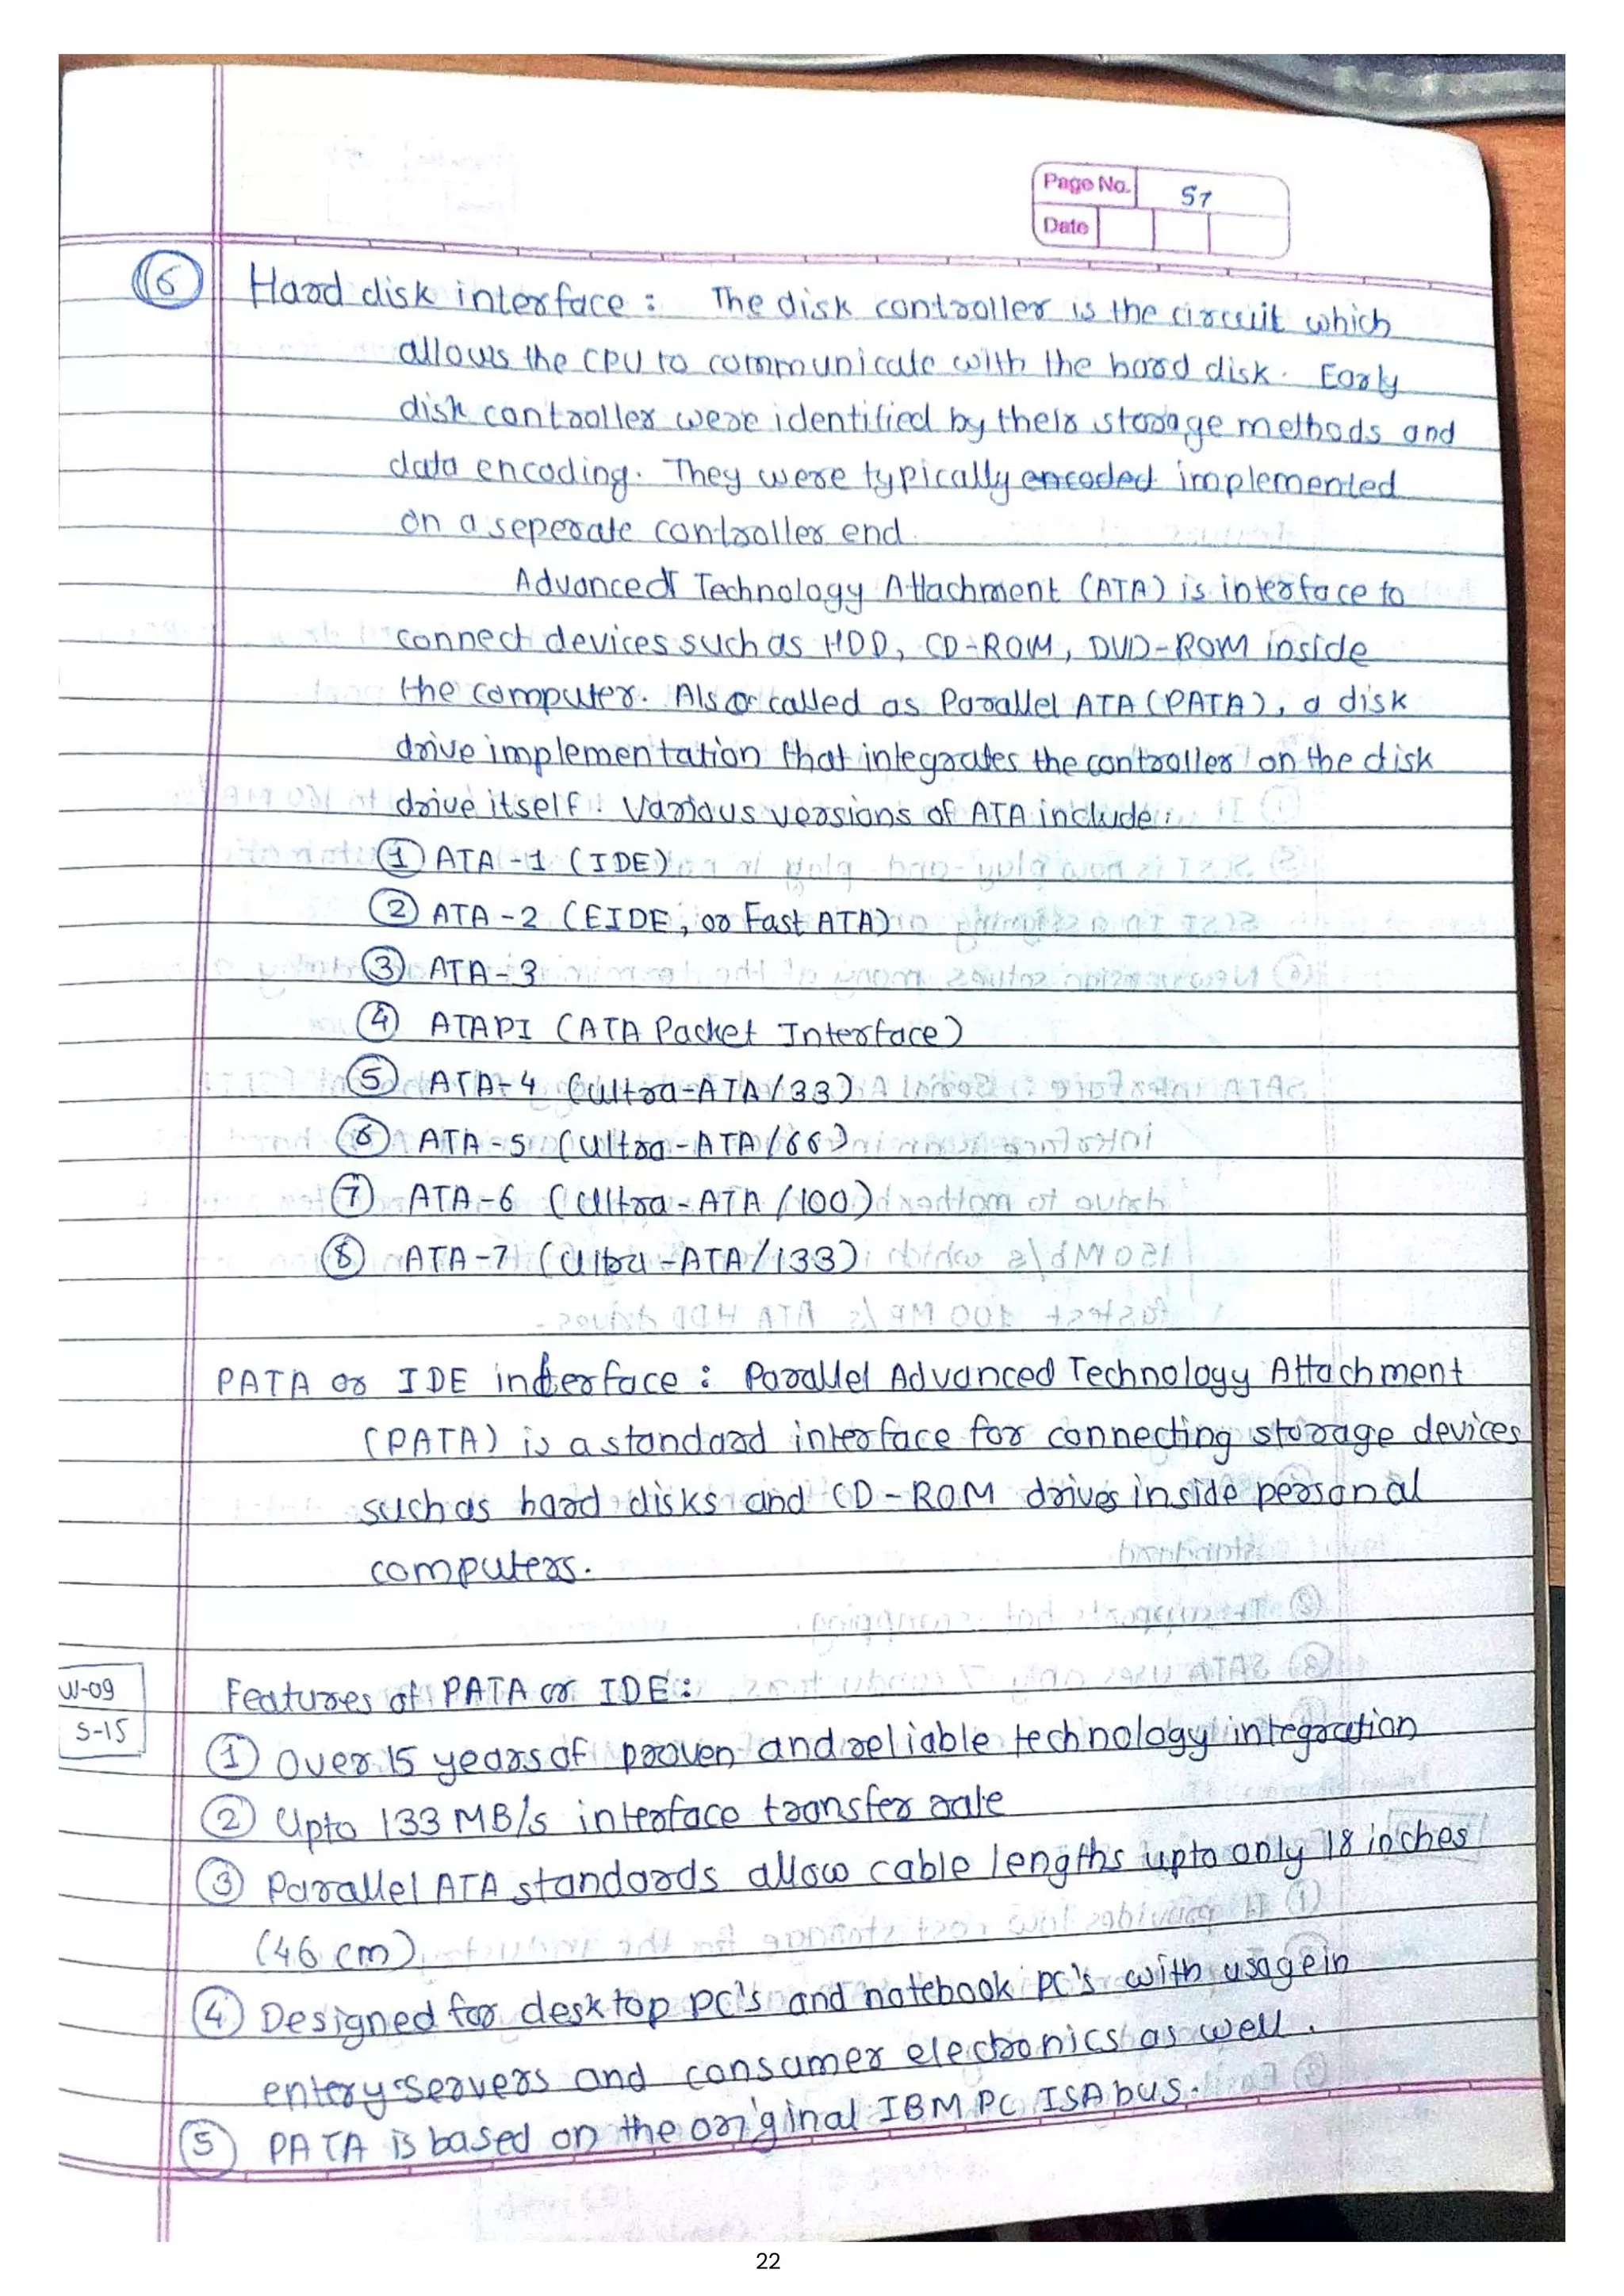 Page No. 57
Date
16 Hard disk interface : The disk controller is the circuit which
allows the CPU to communicate with the hard disk. Early
disk controller were identified by their storage methods and
data encoding. They were typically encoded implemented
on a seperate controller end.
Advanced Technology Attachment (ATA) is interface to
connect devices such as HDD, CD-ROM, DVD-ROM inside
the computer. Also called as Parallel ATA (PATA), a disk
drive implementation that integrates the controller on the disk
drive itself. Various versions of ATA include:
① ATA -1 (IDE)
② ATA -2 (EIDE, or Fast ATA)
③ ATA-3
④ ATAPI (ATA Packet Interface)
⑤ ATA-4 (Ultra-ATA/33)
⑥ ATA-5 (Ultra-ATA/66)
⑦ ATA-6 (Ultra-ATA/100)
⑧ ATA-7 (Ultra-ATA/133)
PATA or IDE interface : Parallel Advanced Technology Attachment
(PATA) is a standard interface for connecting storage devices
such as hard disks and CD-ROM drives inside personal
computers.
W-09
S-15
Features of PATA or IDE:
① Over 15 years of proven and reliable technology integration
② Upto 133 MB/s interface transfer rate
③ Parallel ATA standards allow cable lengths upto only 18 inches
(46 cm)
④ Designed for desktop PC's and notebook PC's with usage in
entery-servers and consumer electronics as well.
⑤ PATA is based on the original IBM PC ISA bus.
22